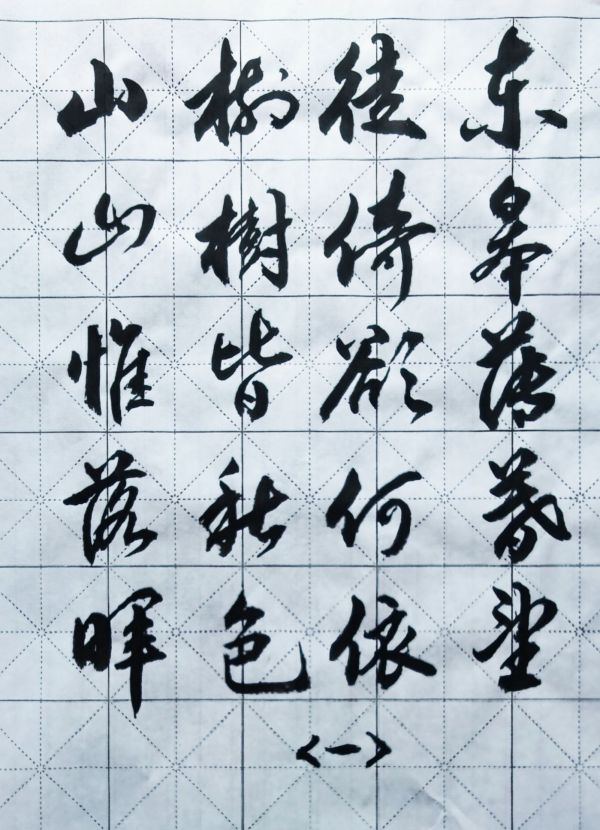 东皋薄暮望
徒倚欲何依
树樹皆秋色
山山惟落暉
<一>